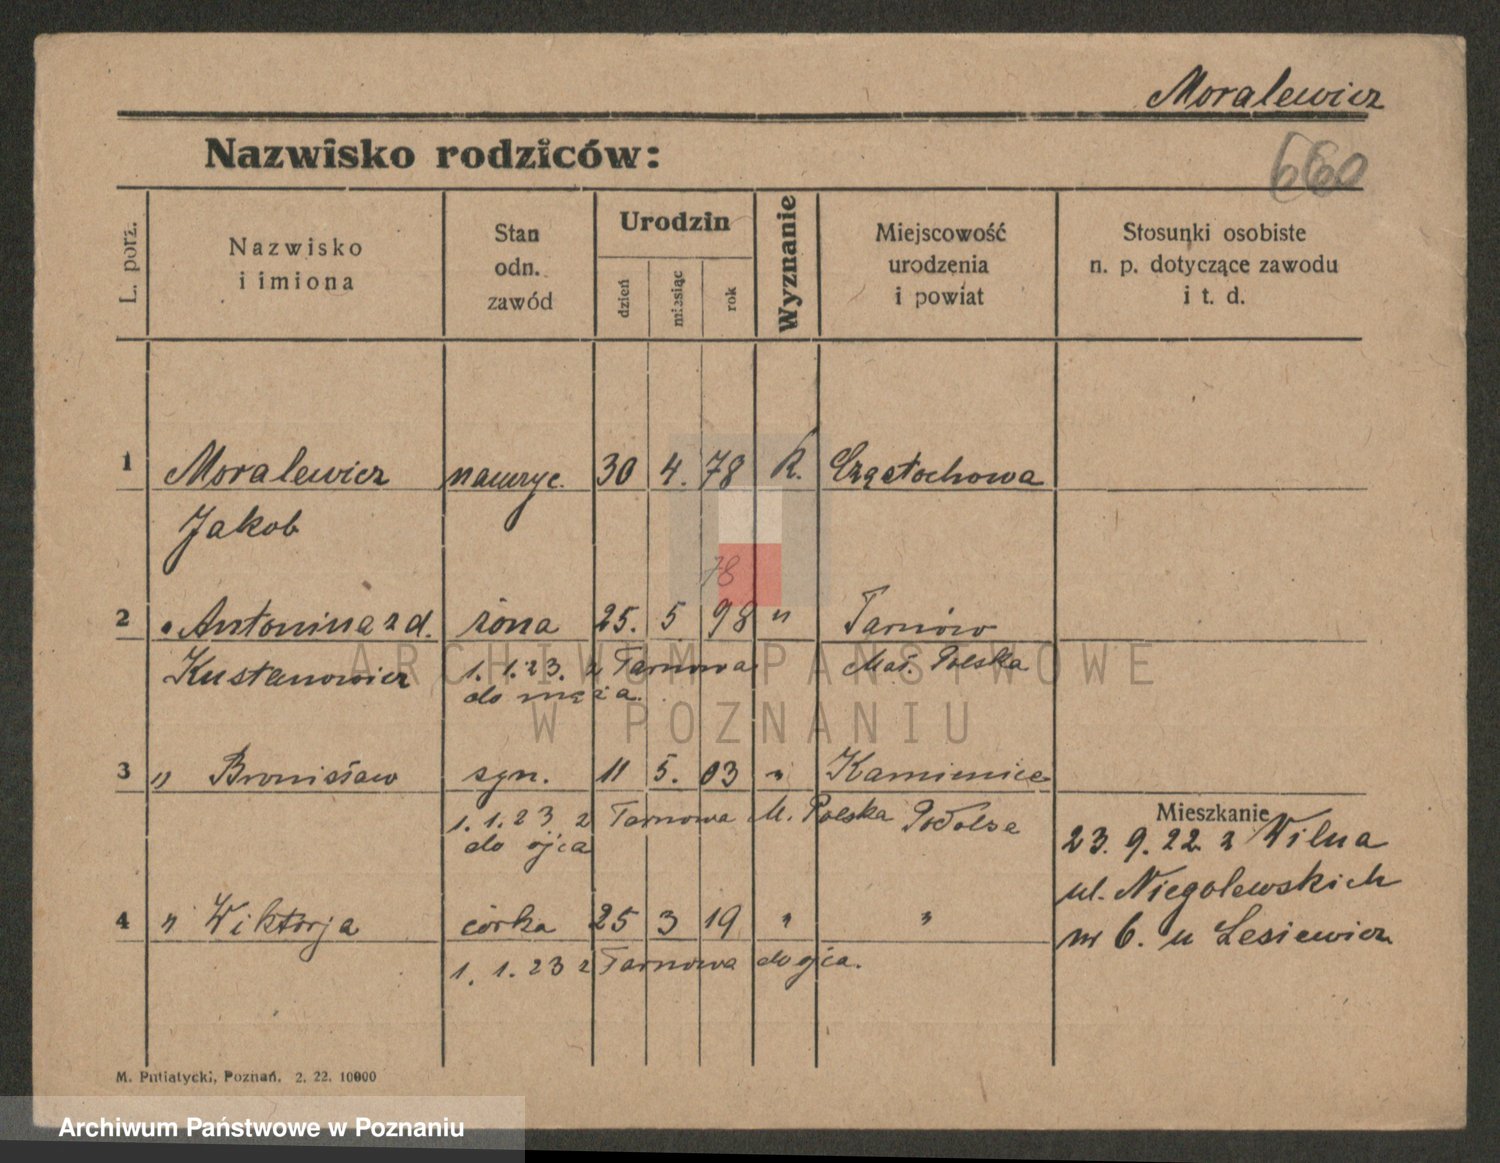 Moralewicz
Nazwisko rodziców:
660
L. porz.
Nazwisko
i imiona
Stan
odn.
zawód
Urodzin
dzień
miesiąc
rok
Wyznanie
Miejscowość
urodzenia
i powiat
Stosunki osobiste
n. p. dotyczące zawodu
i t. d.
1 Moralewicz nauczyc. 30 4. 78 R. Częstochowa
Jakob
78
2 Antonina z d. żona 25. 5 98 " Tarnów
Kustanowicz 1. 1. 23. z Tarnowa Mał. Polska
do męża.
3 " Bronisław syn. 11 5. 03 " Kamieniec
1. 1. 23 z Tarnowa M. Polska
do ojca
Mieszkanie
23. 9. 22 z Wilna
ul. Niegolewskich
nr 6. u Lesiewicz
4 " Wiktorja córka 25 3 19 " "
1. 1. 23 z Tarnowa do ojca.
M. Putiatycki, Poznań. 2. 22. 10000
ARCHIWUM PAŃSTWOWE
W POZNANIU
Archiwum Państwowe w Poznaniu